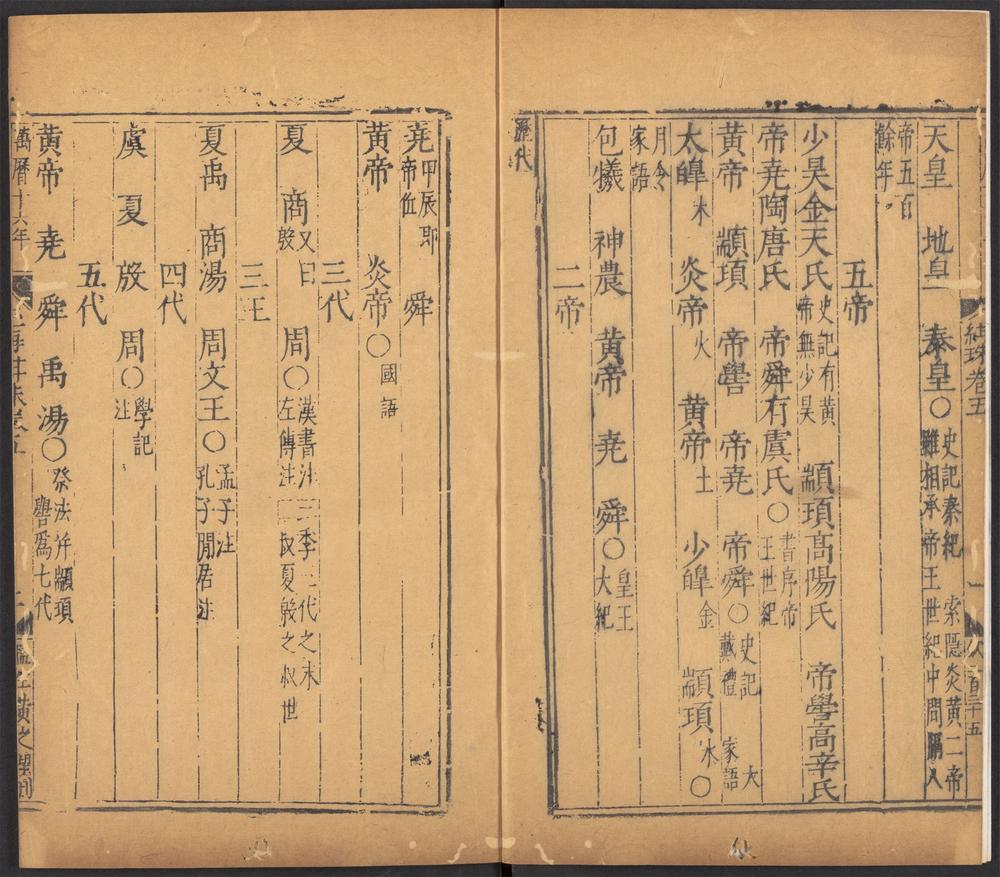 紺珠卷五 一 八百二十五
天皇 地皇 泰皇○史記秦紀 索隱炎黃二帝雖相承帝王世紀中間隔八
帝五百餘年
五帝
少昊金天氏史記有黃帝無少昊 顓頊高陽氏 帝嚳高辛氏
帝堯陶唐氏 帝舜有虞氏○書序帝王世紀
黃帝 顓頊 帝嚳 帝堯 帝舜○史記 大戴禮 家語
太皥木 炎帝火 黃帝土 少皥金 顓頊水○
月令家語
包犧 神農 黃帝 堯 舜○皇王大紀
二帝
歷代
堯甲辰即帝位 舜
黃帝 炎帝○國語
三代
夏 商又曰殷 周○漢書注三季三代之末左傳注二叔夏殷之叔世
三王
夏禹 商湯 周文王○孟子注孔子閒居注
四代
虞 夏 殷 周○學記注
五代
黃帝 堯 舜 禹 湯○祭法并顓頊嚳爲七代
萬曆十六年 卷五 二 監生黃之刊